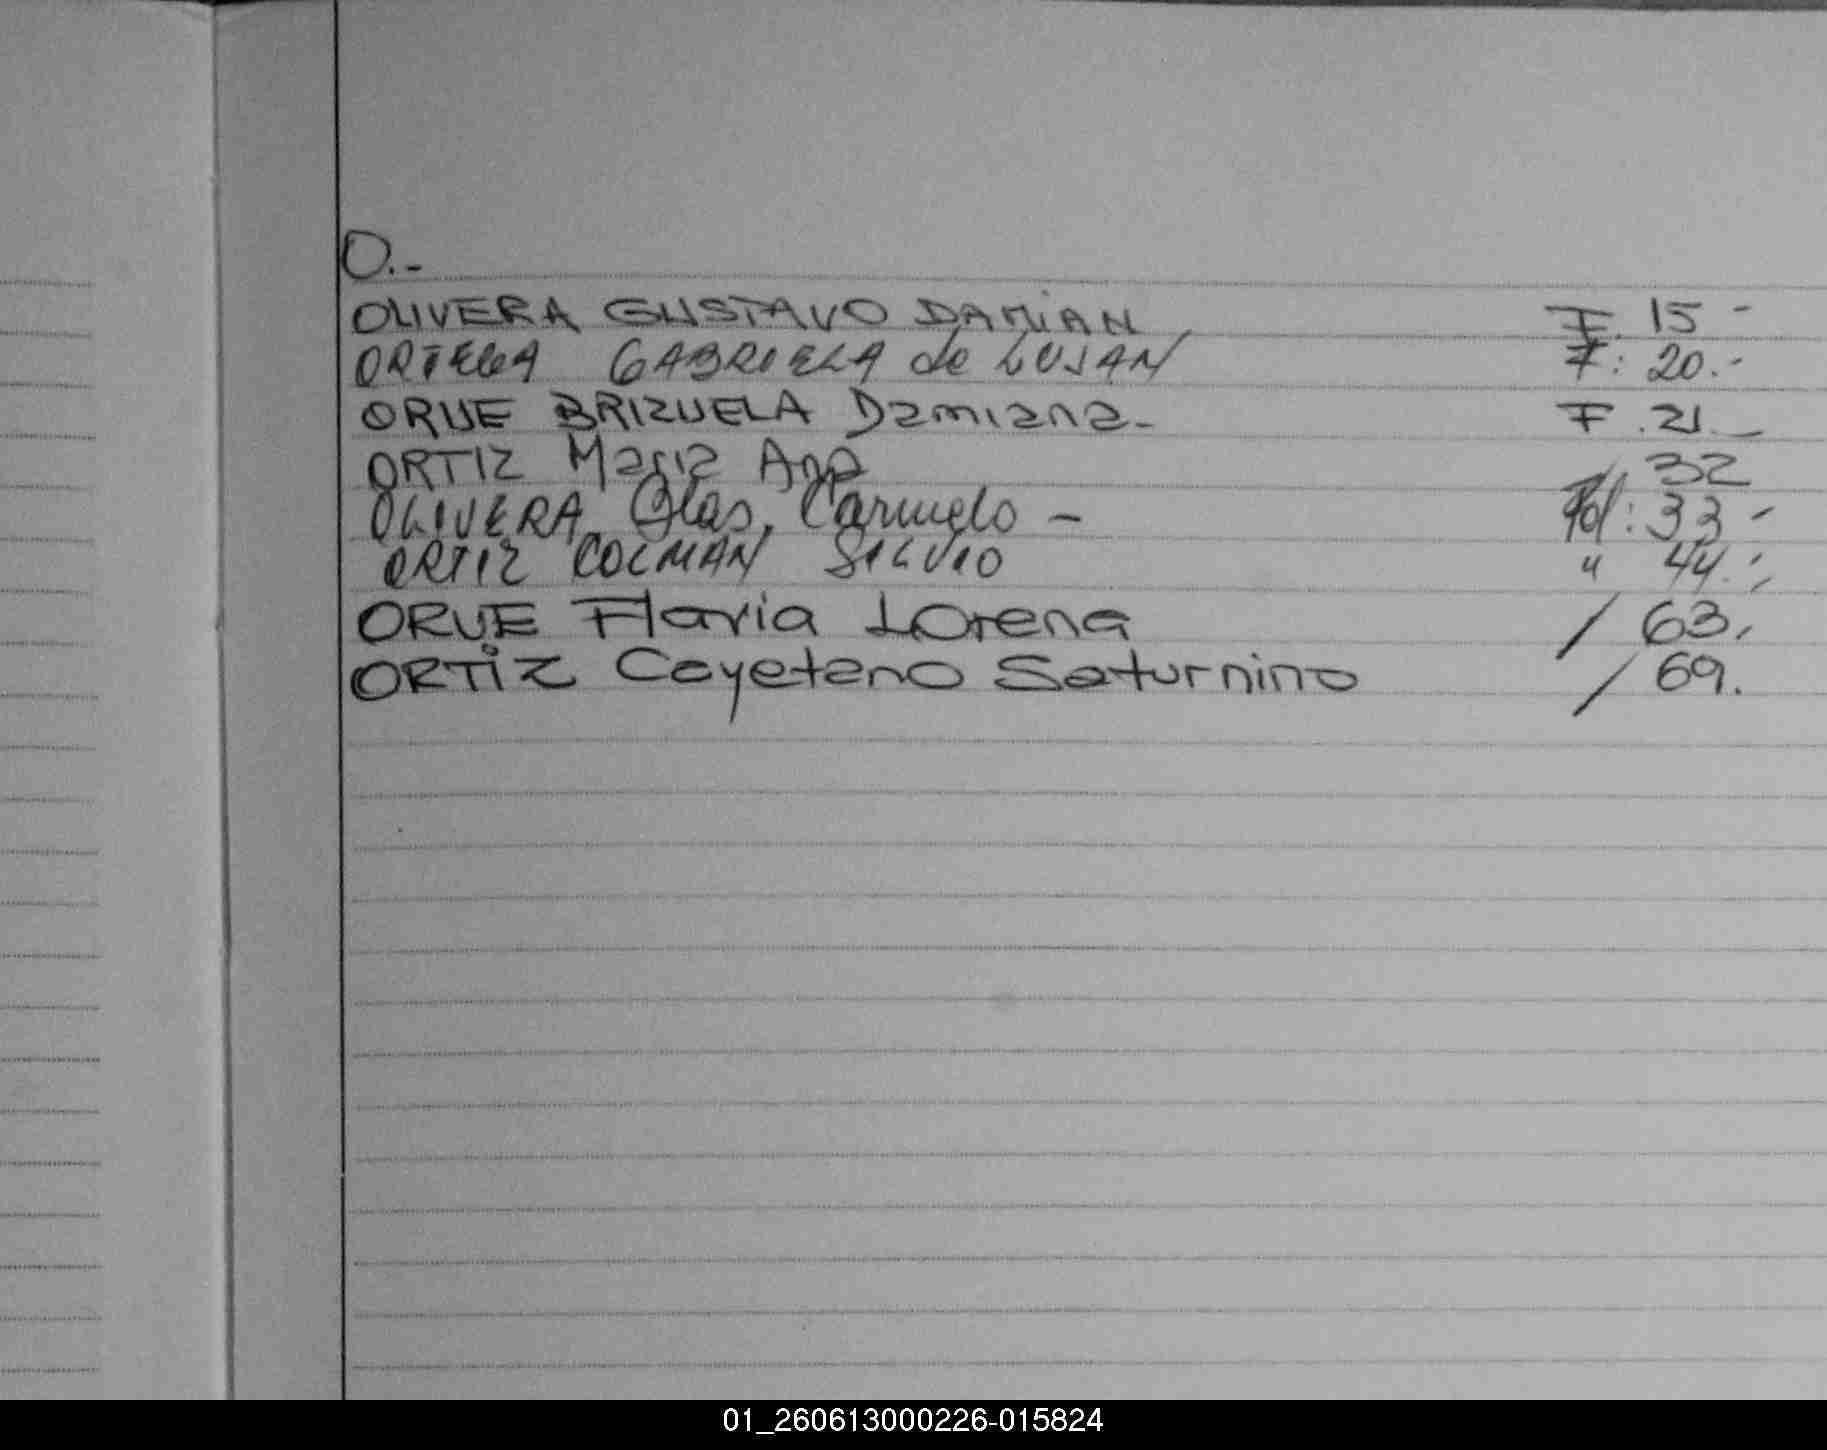 O.-
OLIVERA GUSTAVO DAMIAN F. 15-
ORTEGA GABRIELA de LUJAN F: 20.-
ORUE BRIZUELA Damiana- F. 21._
ORTIZ Maria Ana F. 32
OLIVERA Blas, Carmelo - Fol: 33-
ORTIZ COLMAN SILVIO " 44.-
ORUE Flavia Lorena / 63.
ORTIZ Cayetano Saturnino / 69.
01_260613000226-015824